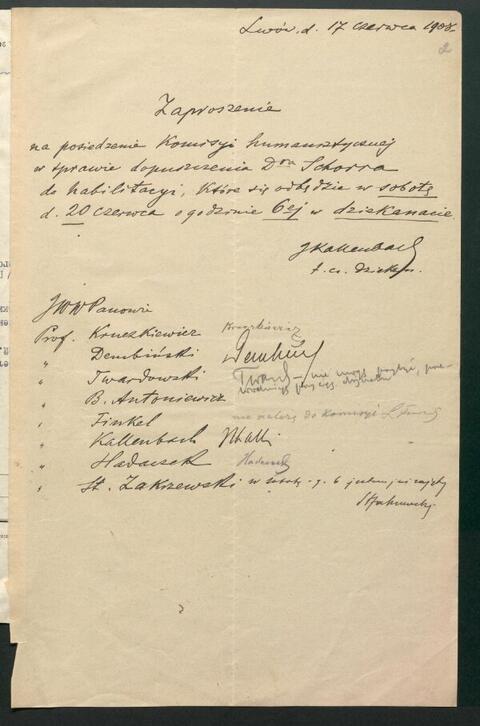 Lwów, d. 17 czerwca 1908.
2
Zaproszenie
na posiedzenie Komisyi humanistycznej
w sprawie dopuszczenia Dra Schorra
do habilitacyi, które się odbędzie w sobotę
d. 20 czerwca o godzinie 6ej w dziekanacie.
JKallenbach
t. cz. dziekan.
JWWPanowie
Prof. Kruczkiewicz Kruczkiewicz
" Dembiński Dembiński
" Twardowski Tward – nie mogę
" B. Antoniewicz
" Finkel nie należę do Komisyi L Finkel
" Kallenbach JKall
" Hadaczek Hadaczek
" St. Zakrzewski w sobotę o g. 6 jestem zajęty
StZakrzewski